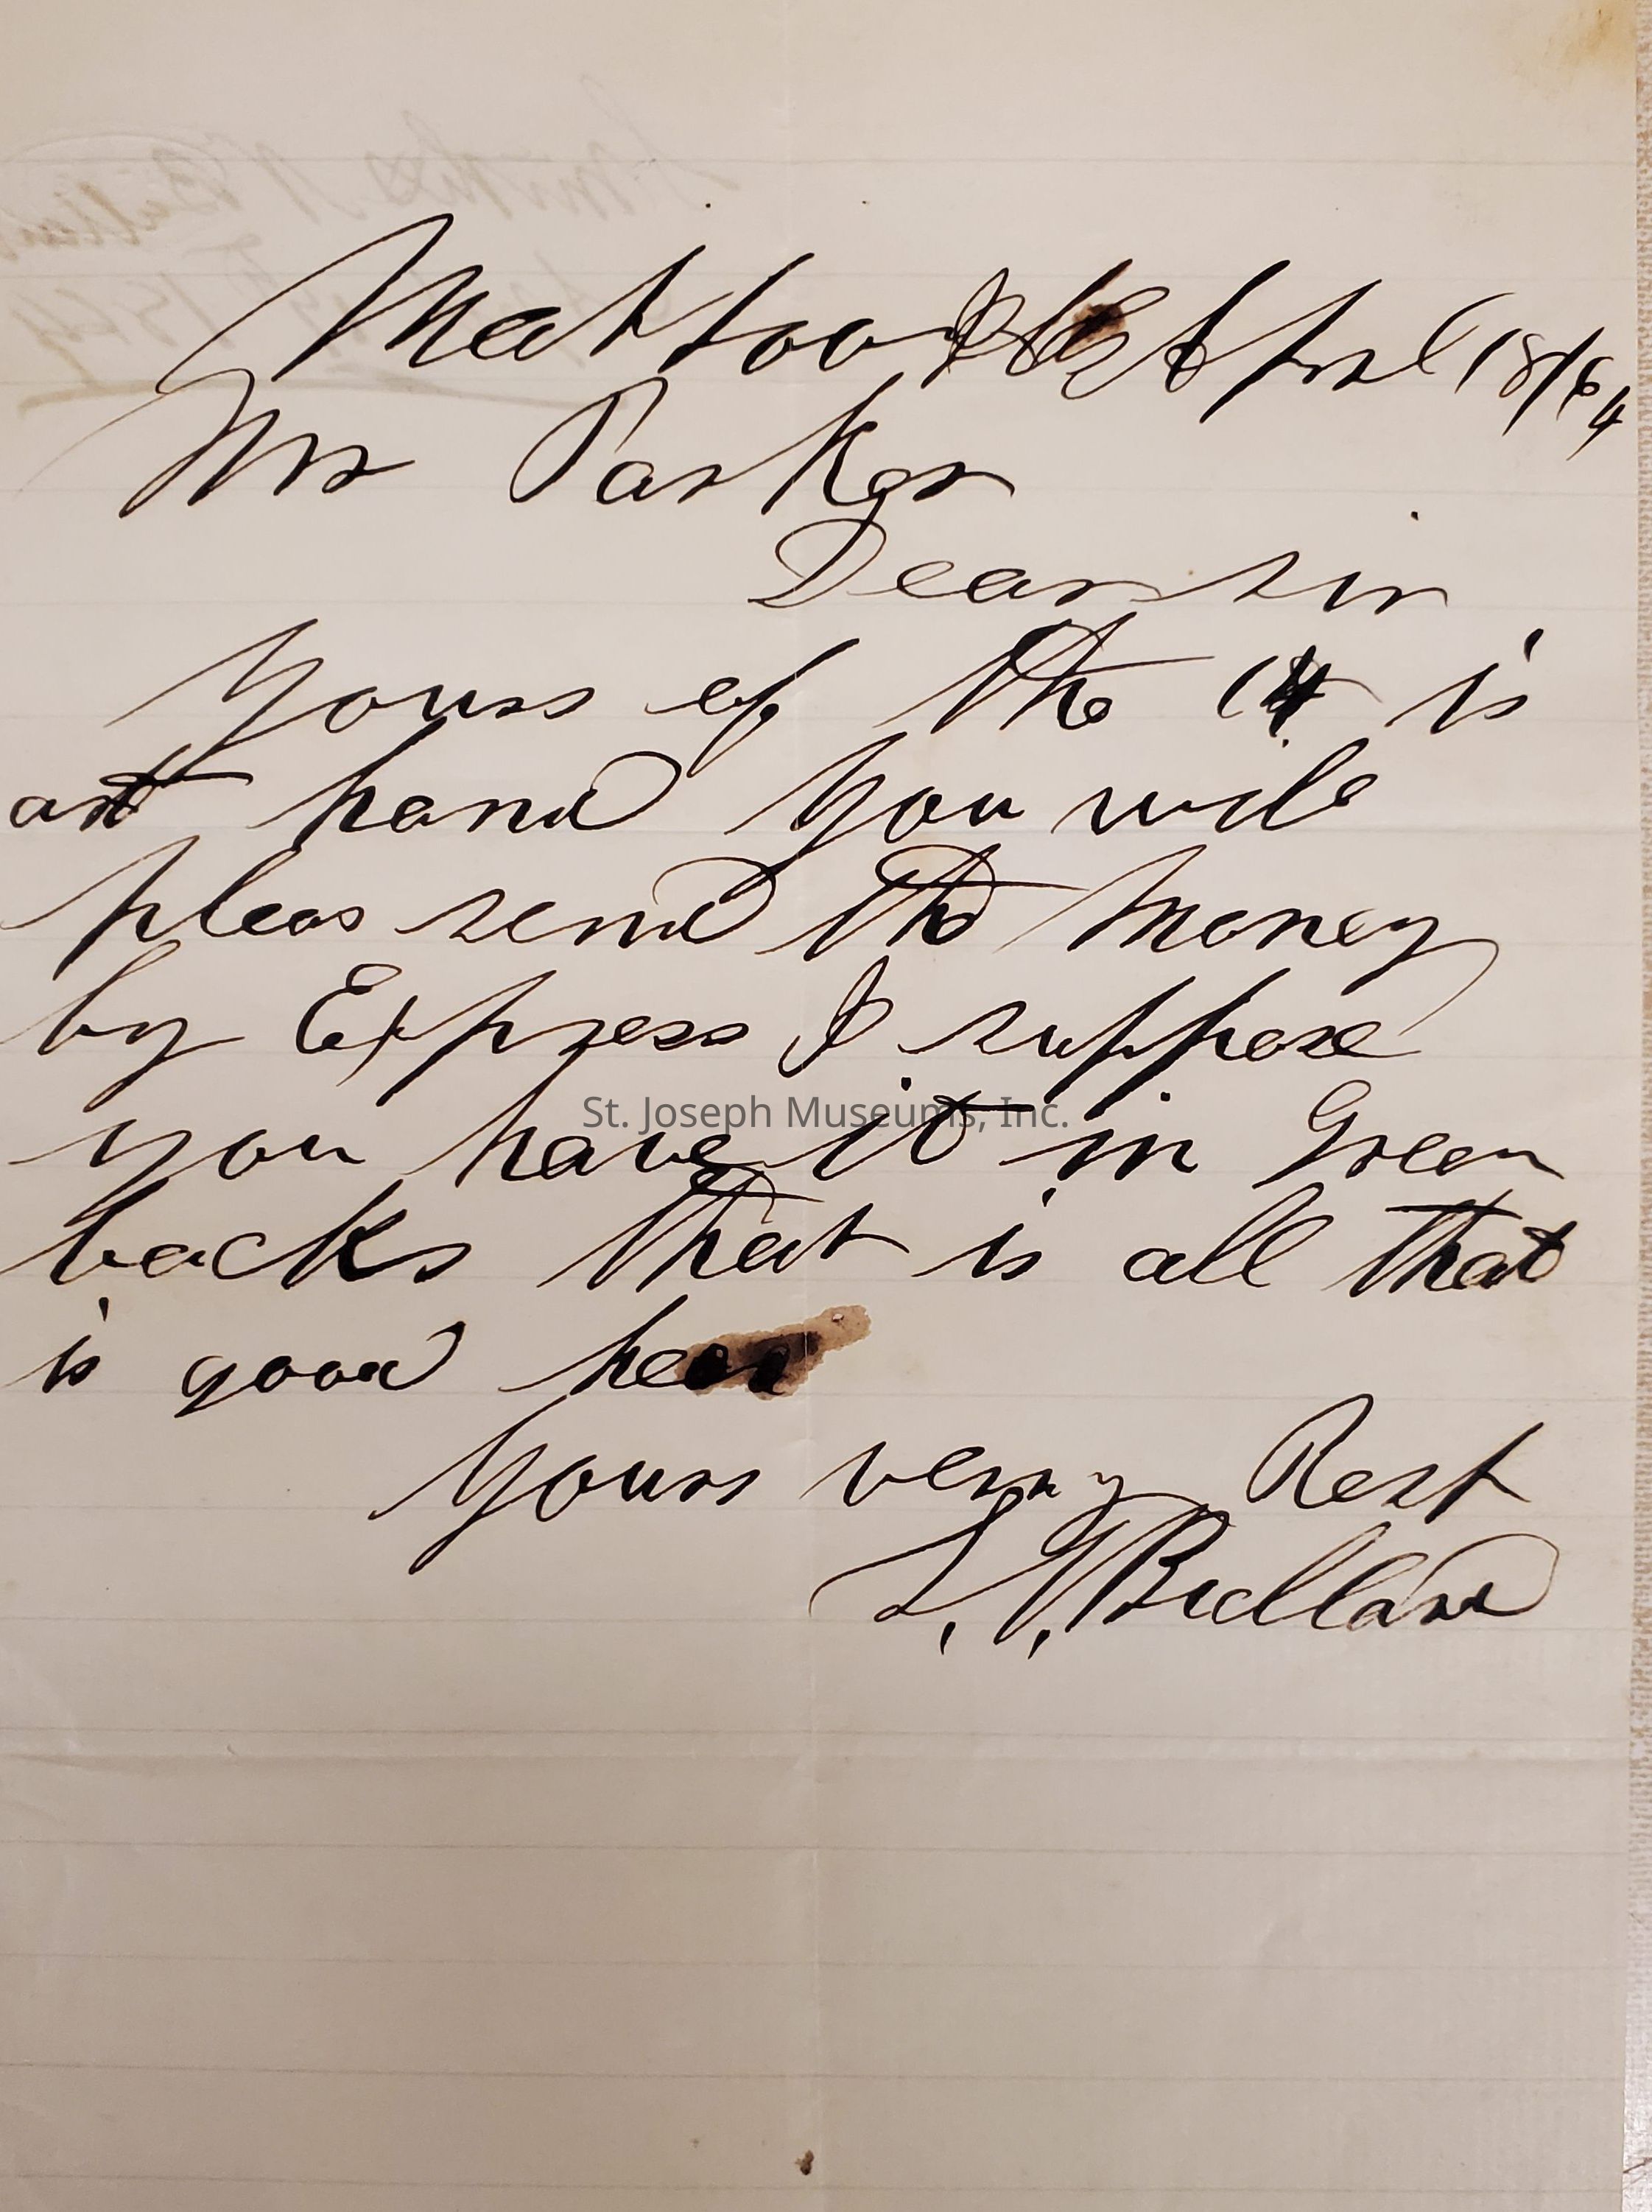 Mattoon Ills April 18/64
Mr Parker
Dear sir
Yours of the 14 is
at hand You will
pleas send the Money
by Express I suppose
you have it in Green
St. Joseph Museums, Inc.
backs that is all that
is good hear
Yours verry Rest